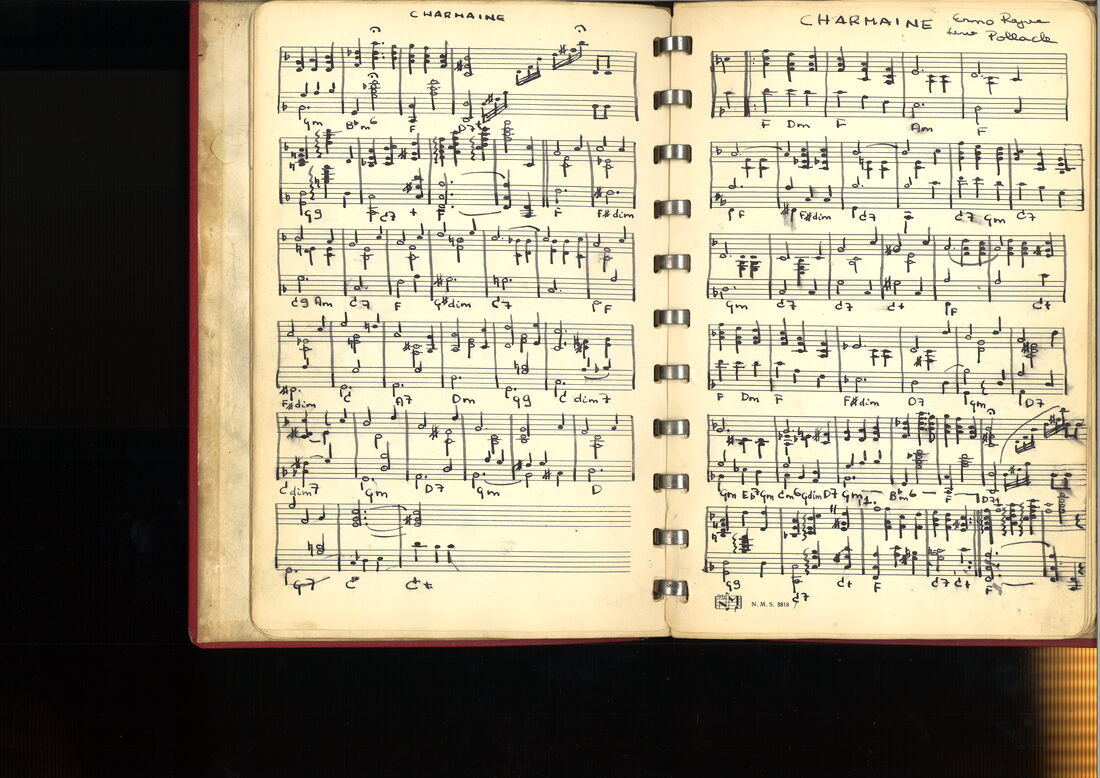 CHARMAINE
Gm B♭m6 F D7+
G9 C7 + F F F#dim
C9 Am C7 F G#dim C7 F
F#dim C A7 Dm G9 C dim7
Cdim7 Gm D7 Gm D
G7 C C+
CHARMAINE Erno Rapee
Lew Pollack
F Dm F Am F
F F#dim C7 C7 Gm C7
Gm C7 C7 C+ F C+
F Dm F F#dim D7 Gm D7
Gm E♭7 Gm Cm6 Gdim D7 Gm B♭m6 F D7+
G9 C7 C+ F C7 C+ F
N. M. S. 3818